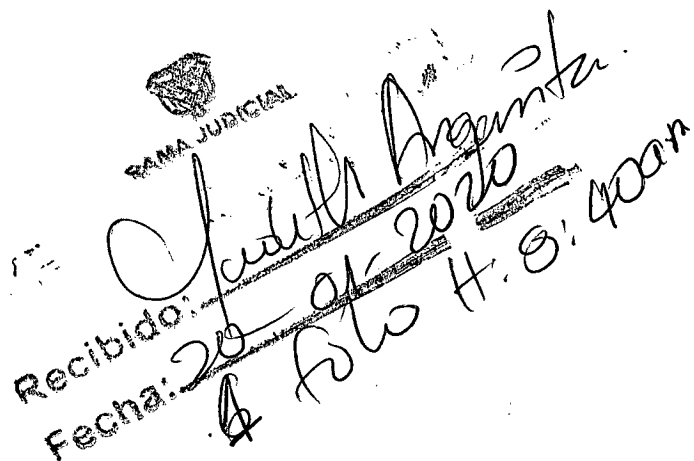 RAMA JUDICIAL
Recibido: Judith Argenita.
Fecha: 20-01-2020
folio H: 8:40am